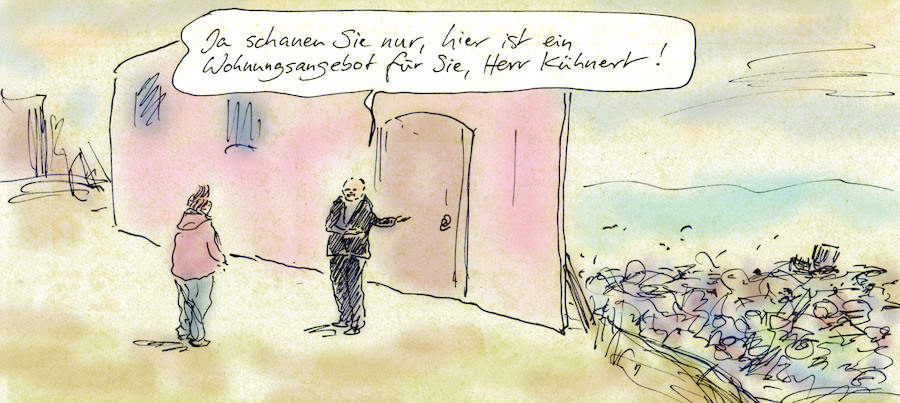 Ja schauen Sie nur, hier ist ein
Wohnungsangebot für Sie, Herr Kühnert!